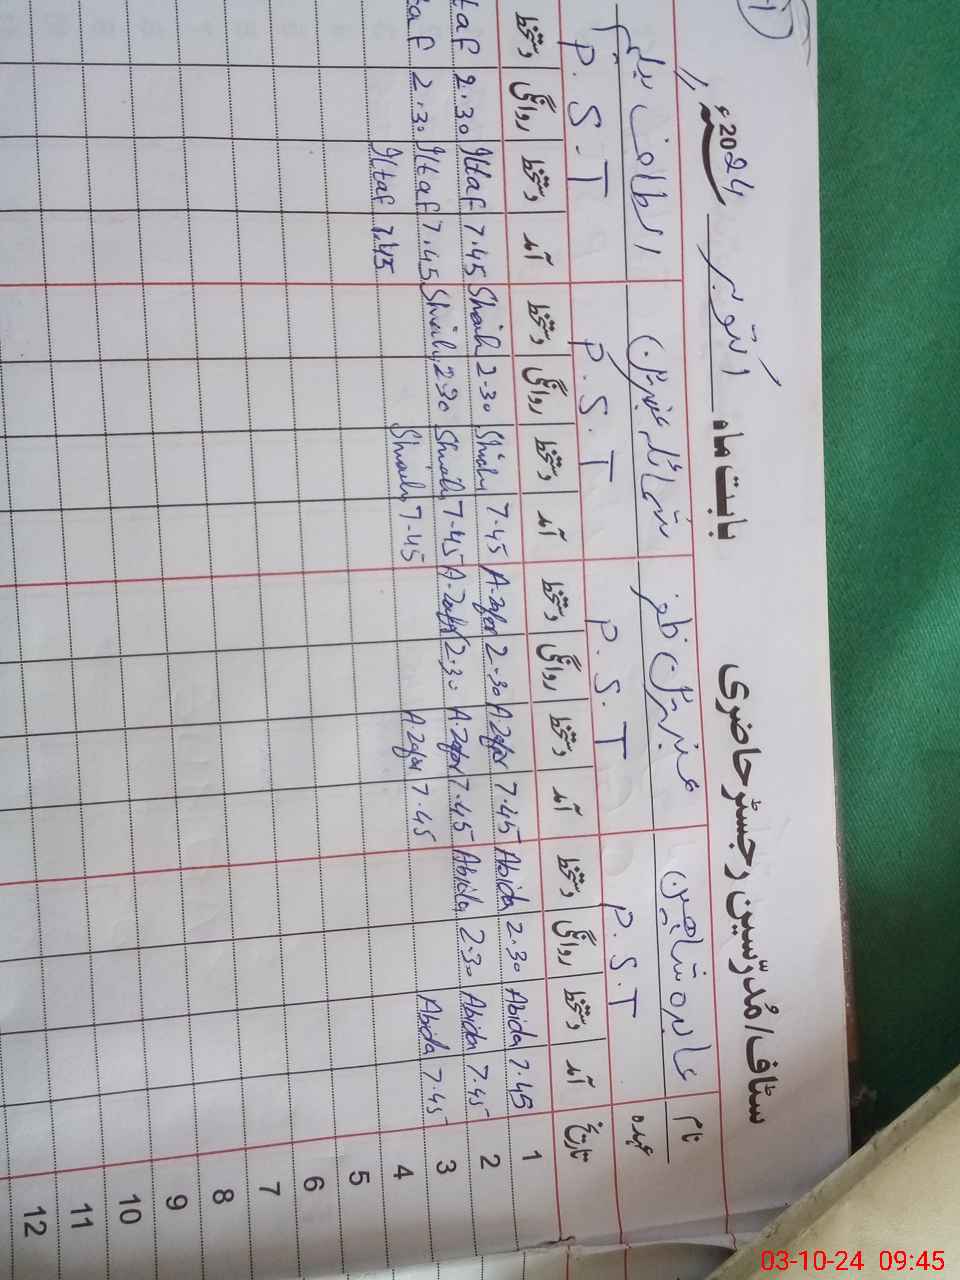 سٹاف/مُدرّسین رجسٹر حاضری بابت ماہ اکتوبر 2024ء
نام عابدہ شاہین عنبرین ظفر شمائلہ عنبرین الطاف بیگم
عہدہ P.S.T P.S.T P.S.T P.S.T
تاریخ آمد دستخط روانگی دستخط آمد دستخط روانگی دستخط آمد دستخط روانگی دستخط آمد دستخط روانگی دستخط
1 7.45 Abida 2.30 Abida 7.45 A.Zafar 2.30 A.Zafar 7.45 2.30 7.45 Iltaf 2.30
2 7.45 Abida 2.30 Abida 7.45 A.Zafar 2.30 A.Zafar 7.45 2.30 7.45 Iltaf 2.30
3 7.45 Abida 7.45 A.Zafar 7.45 7.45 Iltaf
4
5
6
7
8
9
10
11
12
03-10-24 09:45